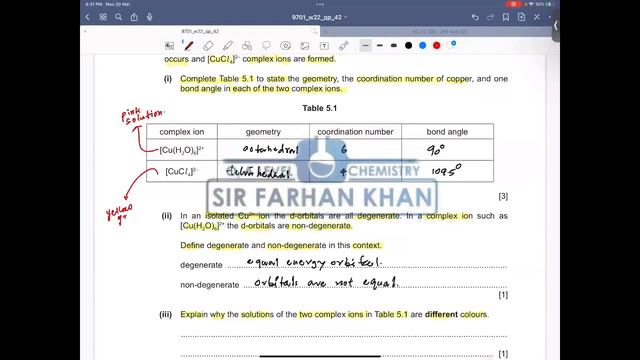 6:31 PM Mon 20 Mar
9701_w22_qp_42
occurs and [CuCl₄]²⁻ complex ions are formed.
(i) Complete Table 5.1 to state the geometry, the coordination number of copper, and one
bond angle in each of the two complex ions.
pink
solution.
Table 5.1
complex ion geometry coordination number bond angle
[Cu(H₂O)₆]²⁺ octahedral 6 90°
[CuCl₄]²⁻ tetrahedral 4 109.5°
yellow
[3]
CHEMISTRY
SIR FARHAN KHAN
(ii) In an isolated Cu²⁺ ion the d-orbitals are all degenerate. In a complex ion such as
[Cu(H₂O)₆]²⁺ the d-orbitals are non-degenerate.
Define degenerate and non-degenerate in this context.
degenerate equal energy orbital.
non-degenerate orbitals are not equal.
[1]
(iii) Explain why the solutions of the two complex ions in Table 5.1 are different colours.
[1]